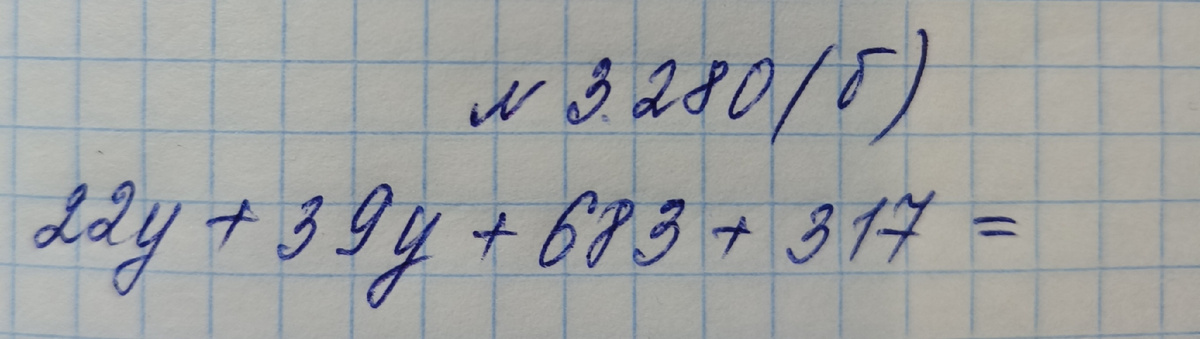 № 3.280 (б)
22y + 39y + 683 + 317 =